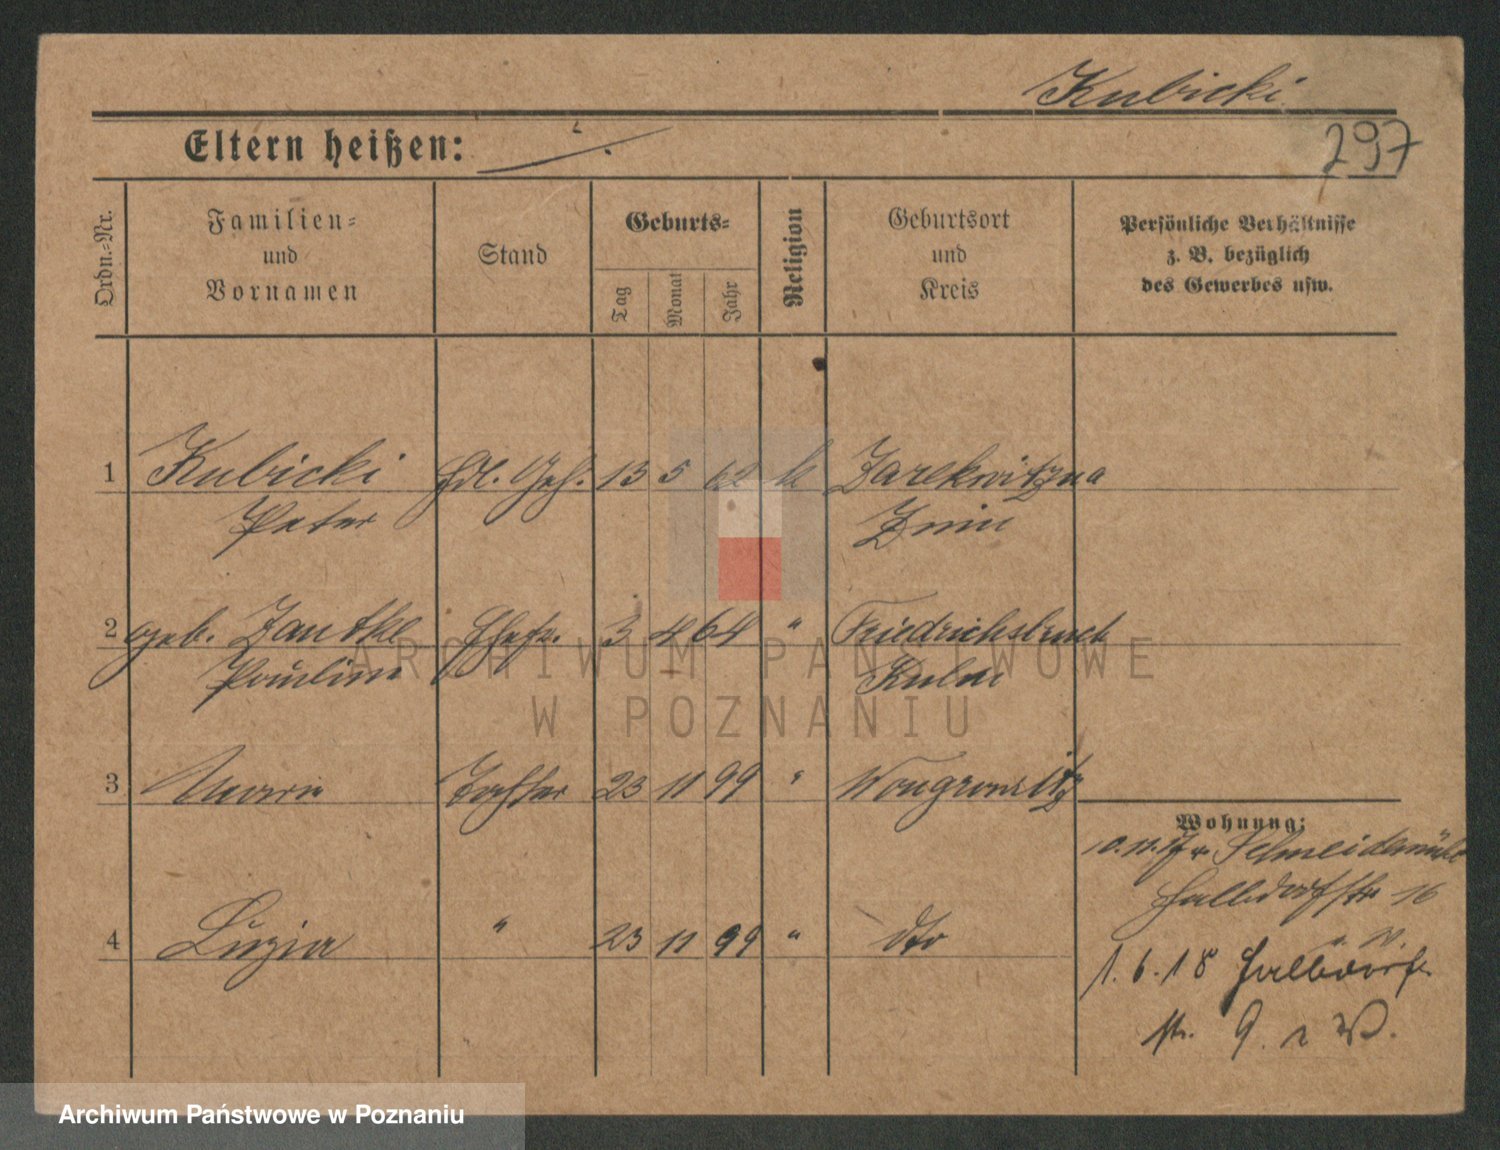 Kubicki
297
Eltern heißen: ./.
Ordn.-Nr.
Familien-
und
Vornamen
Stand
Geburts-
Tag
Monat
Jahr
Religion
Geburtsort
und
Kreis
Persönliche Verhältnisse
z. B. bezüglich
des Gewerbes usw.
1 Kubicki Hdl. Geh. 13 5 62 k
Peter Znin
2 geb. Zantke Ehefr. 3 4 64 " Friedrichsbruch
Pauline Kulm
3 Maria Tochter 23 11 99 " Wongrowitz
Wohnung:
10.11.17 v. Schneidemühl
Halbdorfstr 16
4 Luzia " 23 11 99 " dto
1.6.18 Halbdorf
str. 9. a W.
ARCHIWUM PAŃSTWOWE
W POZNANIU
Archiwum Państwowe w Poznaniu